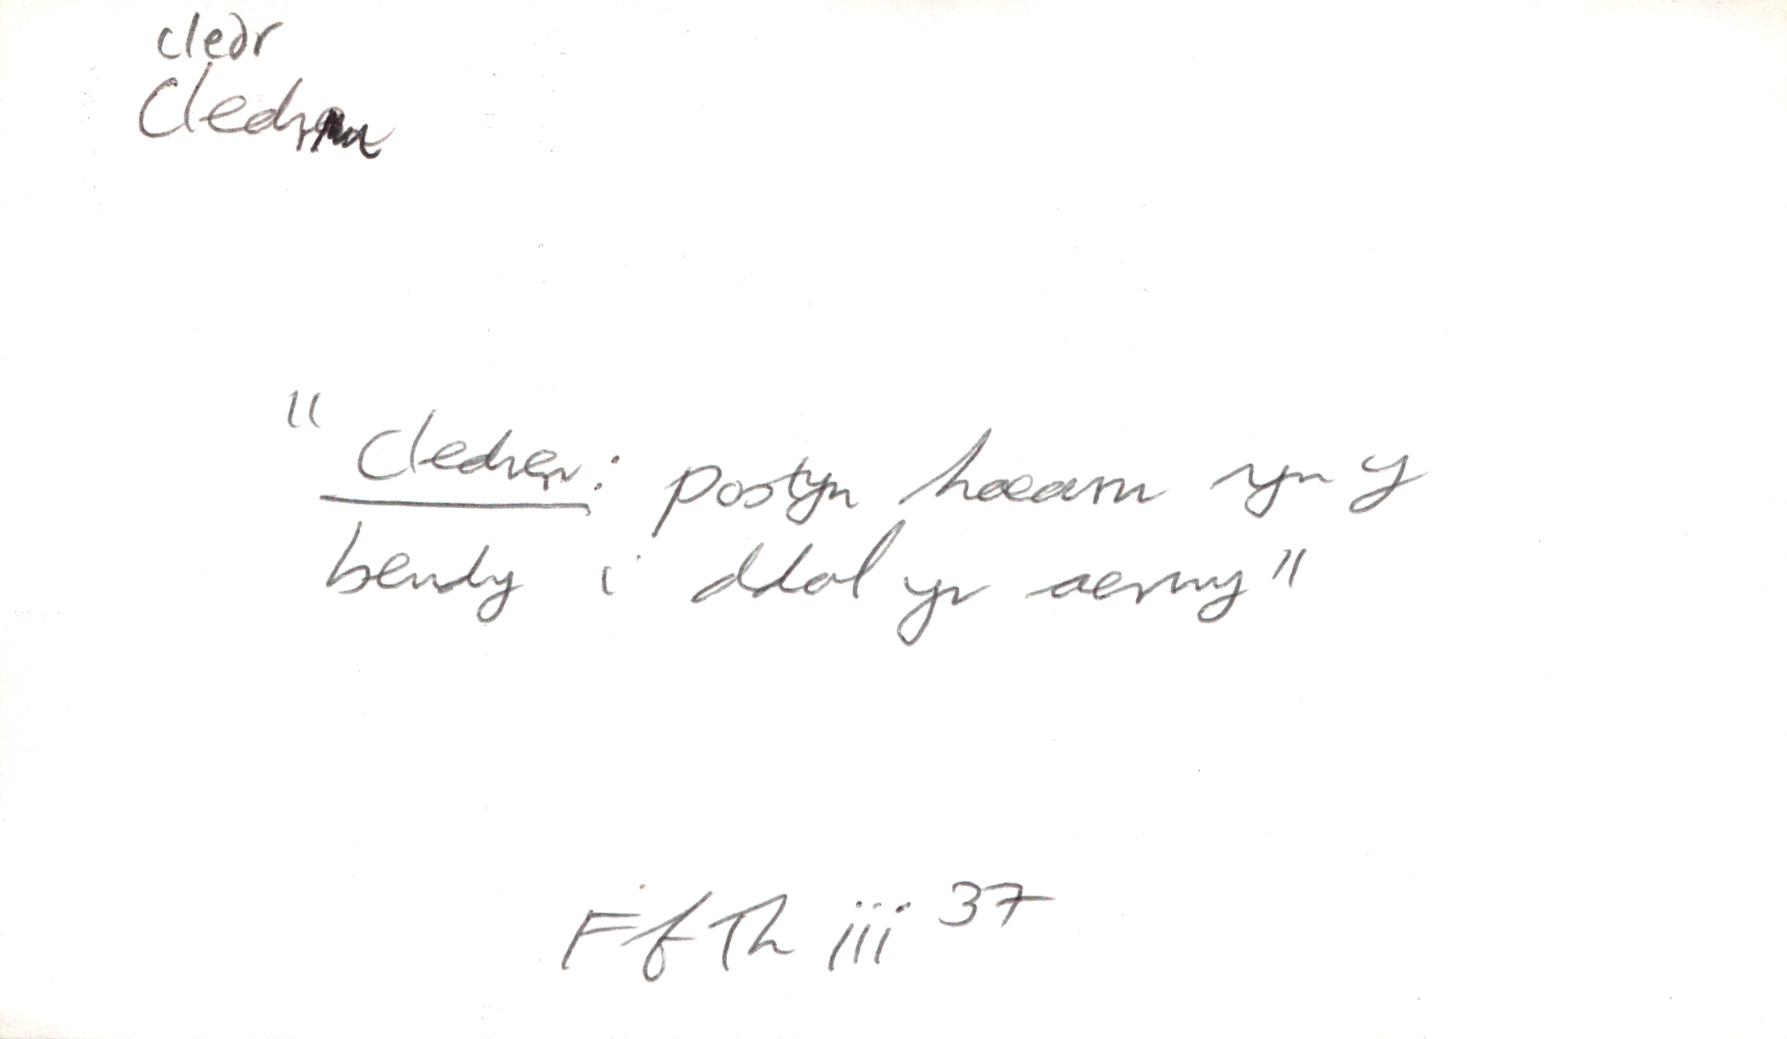 cledr
"Cledren: postyn haearn yn y
beudy i ddal yr aerwy"
Ff Th iii 37